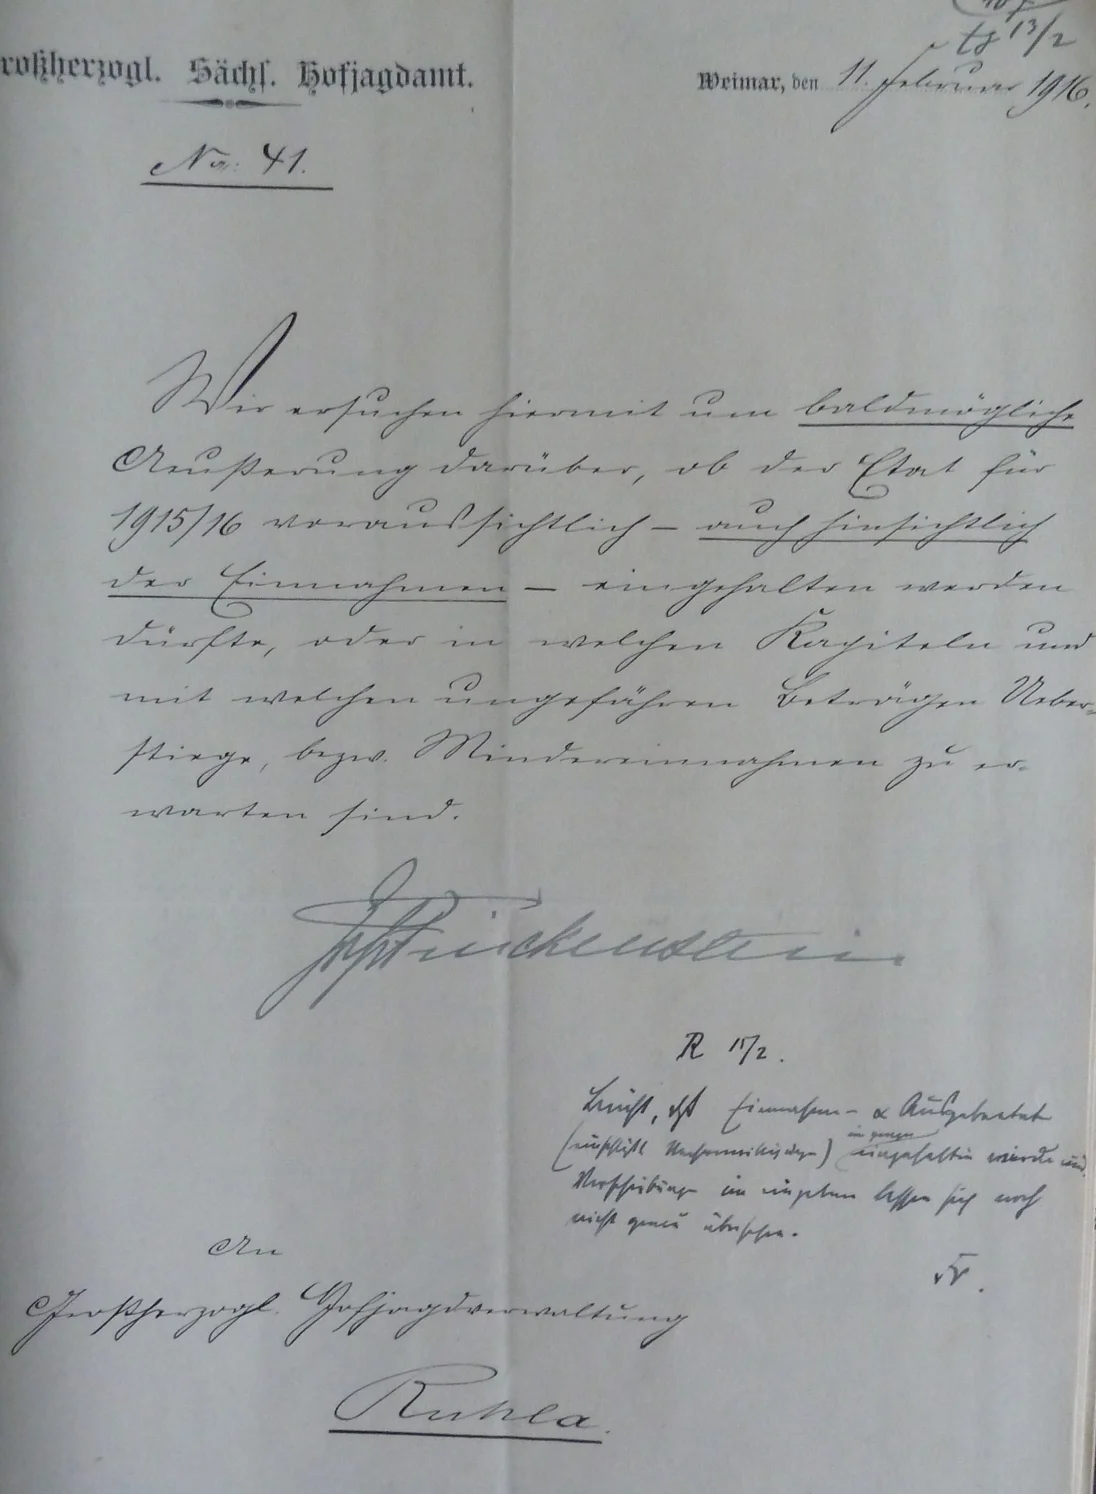 roßherzogl. Sächs. Hofjagdamt.
tg 13/2
Weimar, den 11. Februar 1916.
No: 41.
Wir ersuchen hiermit um baldmögliche
Aeußerung darüber, ob der Etat für
1915/16 voraussichtlich – auch hinsichtlich
der Einnahmen – eingehalten werden
dürfte, oder in welchen Kapiteln und
mit welchen ungefähren Beträgen Ueber-
stiege, bezw. Mindereinnahmen zu er-
warten sind.
R 15/2.
Bericht, daß Einnahmen- & Ausgabeetat
im ganzen
eingehalten würde und
Verschiebungen im einzelnen lassen sich noch
nicht genau übersehen.
An
Großherzogl. Hofjagdverwaltung
Ruhla.